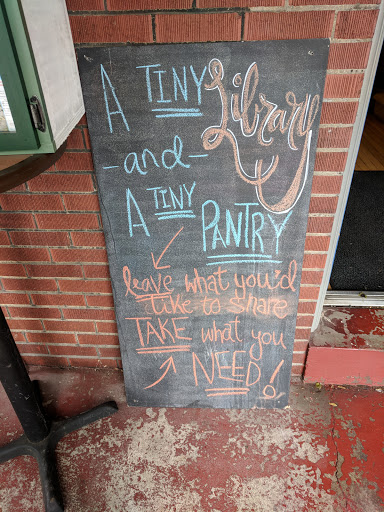 A TINY Library
-and-
A TINY PANTRY
leave what you'd
like to share
TAKE what you
NEED!